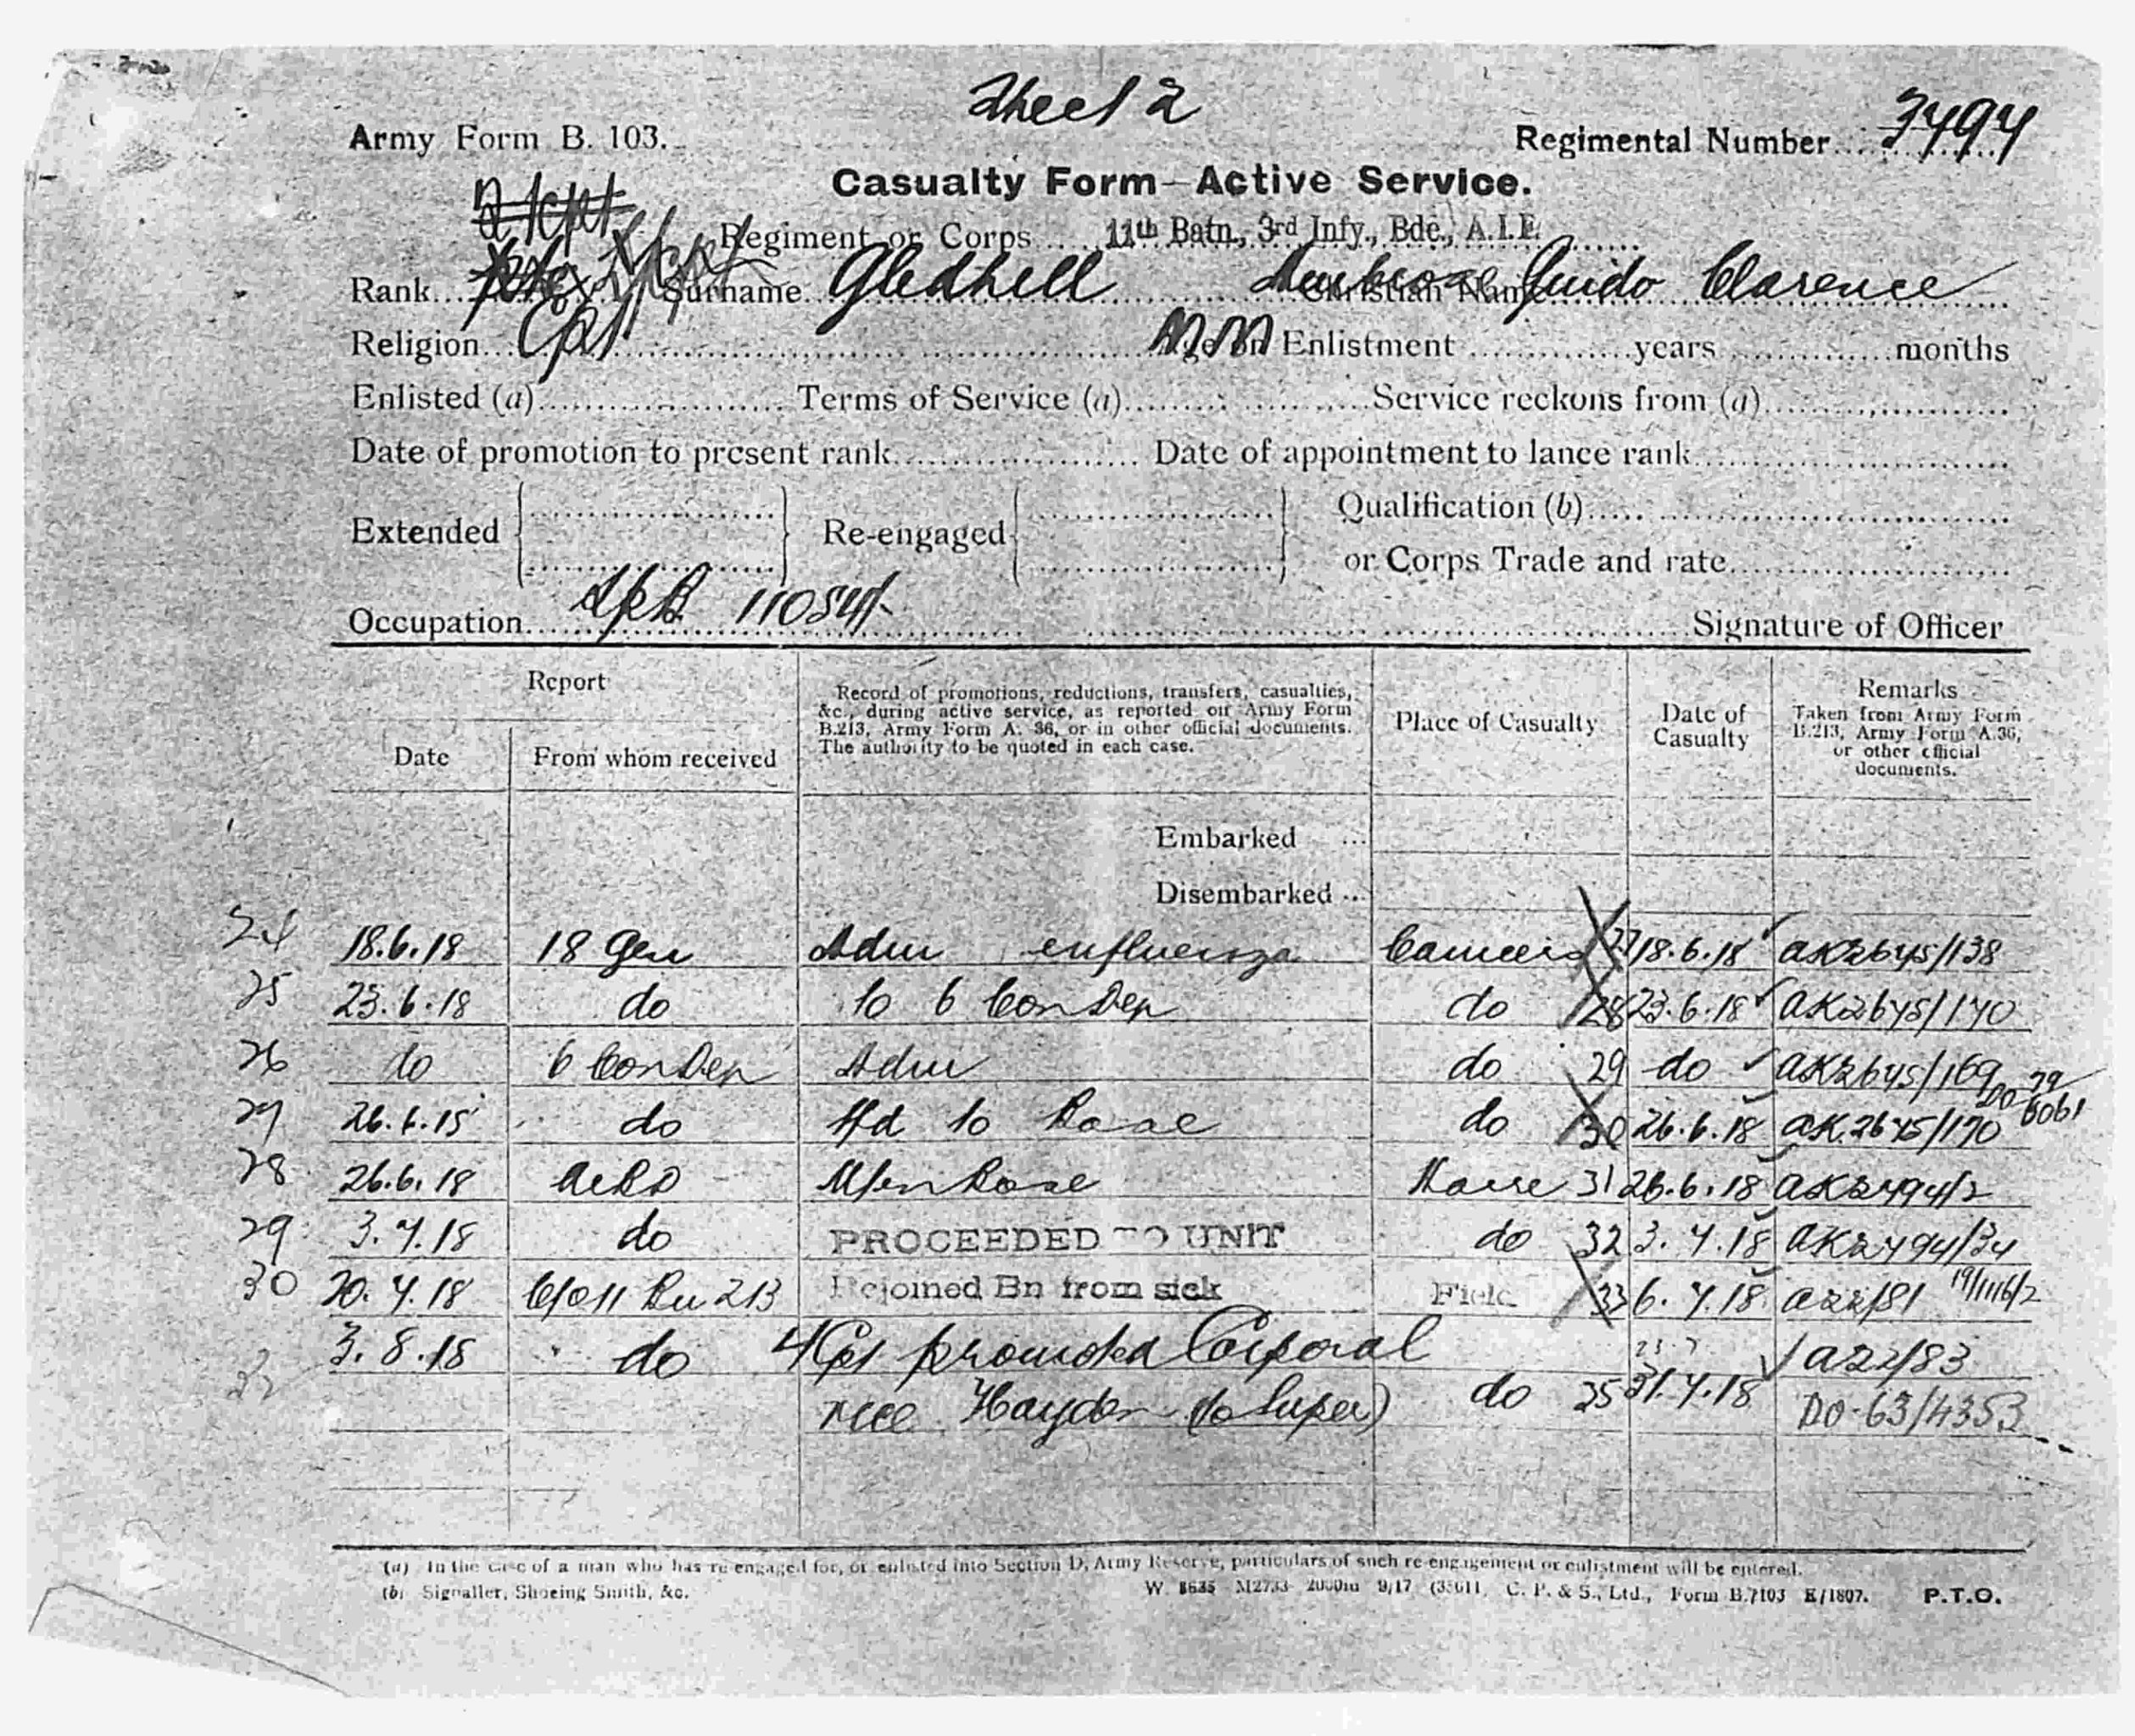 Sheet 2
Army Form B. 103. Regimental Number 3494
Casualty Form—Active Service.
Regiment or Corps 11th Batn., 3rd Infy., Bde., A.I.F.
Rank Surname Gledhill Christian Name Guido Clarence
Religion Cpl MM Age on Enlistment years months
Enlisted (a) Terms of Service (a) Service reckons from (a)
Date of promotion to present rank Date of appointment to lance rank
Extended Re-engaged Qualification (b)
or Corps Trade and rate
Occupation Signature of Officer
Report
Date From whom received
Record of promotions, reductions, transfers, casualties,
&c., during active service, as reported on Army Form
B.213, Army Form A. 36, or in other official documents.
The authority to be quoted in each case.
Place of Casualty
Date of
Casualty
Remarks
Taken from Army Form
B.213, Army Form A.36,
or other official
documents.
Embarked ...
Disembarked ...
24 18.6.18 18 Gen Adm influenza Camiers 27 18.6.18 AK2645/138
25 23.6.18 do to 6 Con Dep do 28 23.6.18 AK2645/170
26 do 6 Con Dep Adm do 29 do AK2645/169
27 26.6.18 do tfd to Base do 30 26.6.18 AK.2645/170
28 26.6.18 Base 31 26.6.18 AK2494/2
29 3.7.18 do PROCEEDED TO UNIT do 32 3.7.18 AK2494/34
30 20.7.18 C/O 11 Bn 213 Rejoined Bn from sick Field 33 6.7.18 A22/81 19/1116/2
3.8.18 do L/Cpl promoted Corporal A22/83
vice Hayden (to Super) do 35 31.7.18 DO-63/4353
(a) In the case of a man who has re-engaged for, or enlisted into Section D, Army Reserve, particulars of such re-engagement or enlistment will be entered.
(b) Signaller, Shoeing Smith, &c. C. P. & S., Ltd., Form B./103 E/1807. P.T.O.